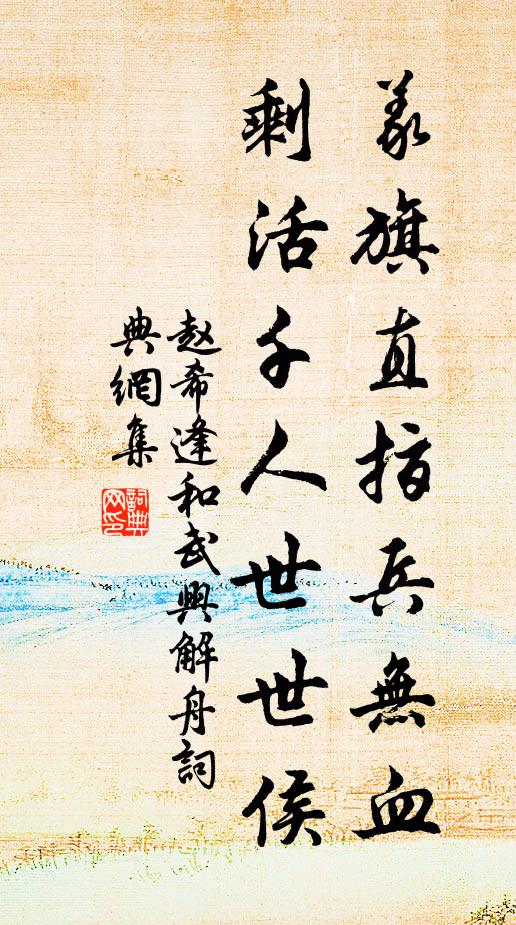 義旗直指兵無血
剩活千人世世侯
赵希逢和武興解舟詞
典網集
詞典
网印